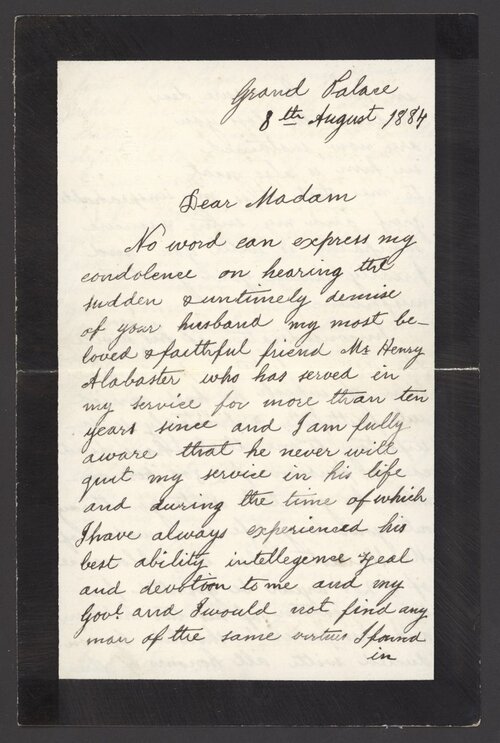 Grand Palace
8th August 1884
Dear Madam
No word can express my
condolence on hearing the
sudden & untimely demise
of your husband my most be-
loved & faithful friend Mr Henry
Alabaster who has served in
my service for more than ten
years since and I am fully
aware that he never will
quit my service in his life
and during the time of which
I have always experienced his
best ability intellegence zeal
and devotion to me and my
Govt. and I would not find any
man of the same virtues I found
in